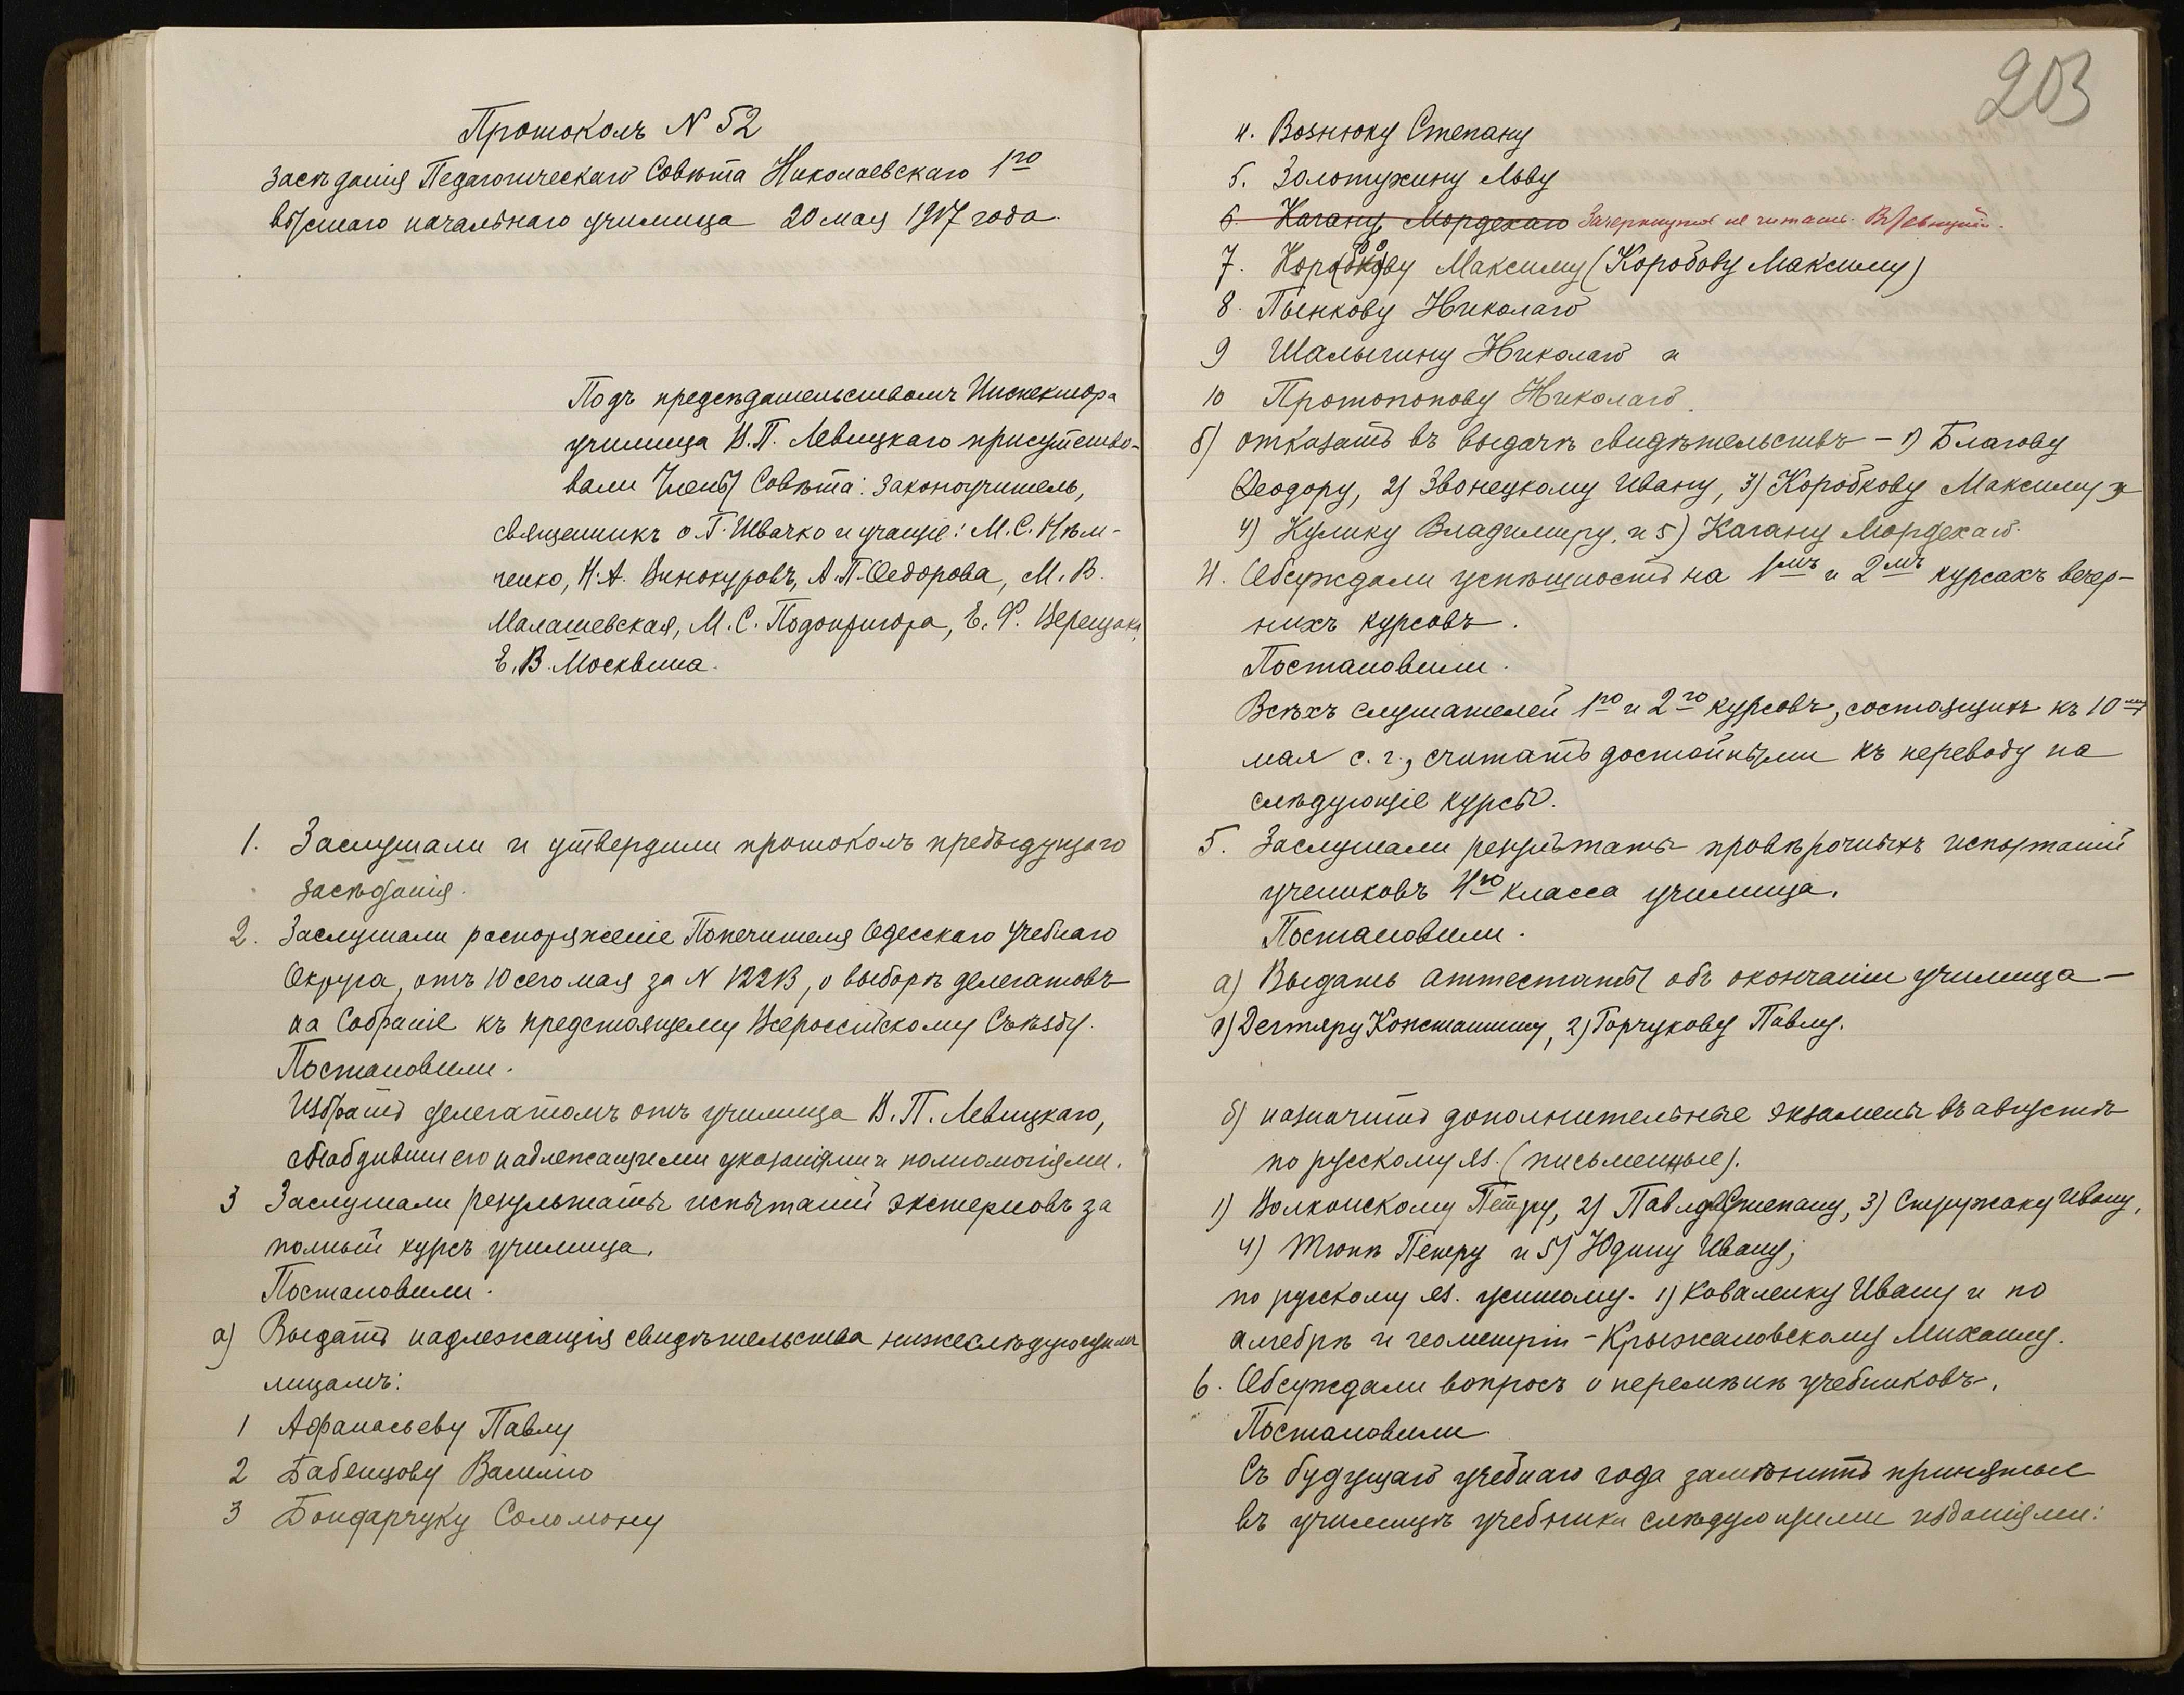 Протоколъ N 52
засѣданія Педагогическаго Совѣта Николаевскаго 1го
высшаго начальнаго училища 20 мая 1917 года.
Подъ предсѣдательствомъ Инспектора
училища В.П. Левицкаго присутство-
вали Члены Совѣта: Законоучитель,
священникъ о. Г. Швачко и учащіе: М.С. Нѣм-
ченко, Н.А. Винокуровъ, А.П. Ѳедорова, М.В.
Малашевская, М.С. Подопригора, Е.Ф. Верещака,
Е.В. Москвина.
1. Заслушали и утвердили протоколъ предыдущаго
засѣданія.
2. Заслушали распоряженіе Попечителя Одесскаго Учебнаго
Округа, отъ 10 сего мая за N 12213, о выборѣ делегатовъ
на Собраніе къ предстоящему Всероссійскому Съѣзду.
Постановили.
Избрать делегатомъ отъ училища В.П. Левицкаго,
снабдивши его надлежащими указаніями и полномочіями.
3 Заслушали результаты испытаній экстерновъ за
полный курсъ училища.
Постановили.
а) Выдать надлежащія свидѣтельства нижеслѣдующимъ
лицамъ:
1 Афанасьеву Павлу
2 Бабенцову Василію
3 Бондарчуку Соломону
203
4. Вознюку Степану
5. Золотухину Льву
6 Кагану Мордехаю Зачеркнутое не читать. В Левицкій.
7. Коробову Максиму (Коробову Максиму)
8. Пьенкову Николаю
9 Шалыгину Николаю и
10 Протопопову Николаю.
б) отказать въ выдачѣ свидѣтельствъ – 1) Благову
Ѳеодору, 2) Звонецкому Ивану, 3) Коробкову Максиму
4) Кулику Владимиру, и 5) Кагану Мордехаю.
4. Обсуждали успѣшность на 1мъ и 2мъ курсахъ вечер-
нихъ курсовъ.
Постановили.
Всѣхъ слушателей 1го и 2го курсовъ, состоящихъ къ 10му
мая с. г., считать достойными къ переводу на
слѣдующіе курсы.
5. Заслушали результаты провѣрочныхъ испытаній
учениковъ 4го класса училища.
Постановили.
а) Выдать аттестаты объ окончаніи училища –
1) Дегтяру Константину, 2) Горчукову Павлу.
б) назначить дополнительные экзамены въ августѣ
по русскому яз. (письменные).
1) Волконскому Петру, 2) Степану, 3) Стружаку Ивану,
4) Тюпѣ Петру и 5) Юдину Ивану;
по русскому яз. устному. 1) Коваленку Ивану и по
алгебрѣ и геометріи – Крыжановскому Михаилу.
6. Обсуждали вопросъ о перемѣнѣ учебниковъ.
Постановили
Съ будущаго учебнаго года замѣнить принятые
въ училищѣ учебники слѣдующими изданіями: